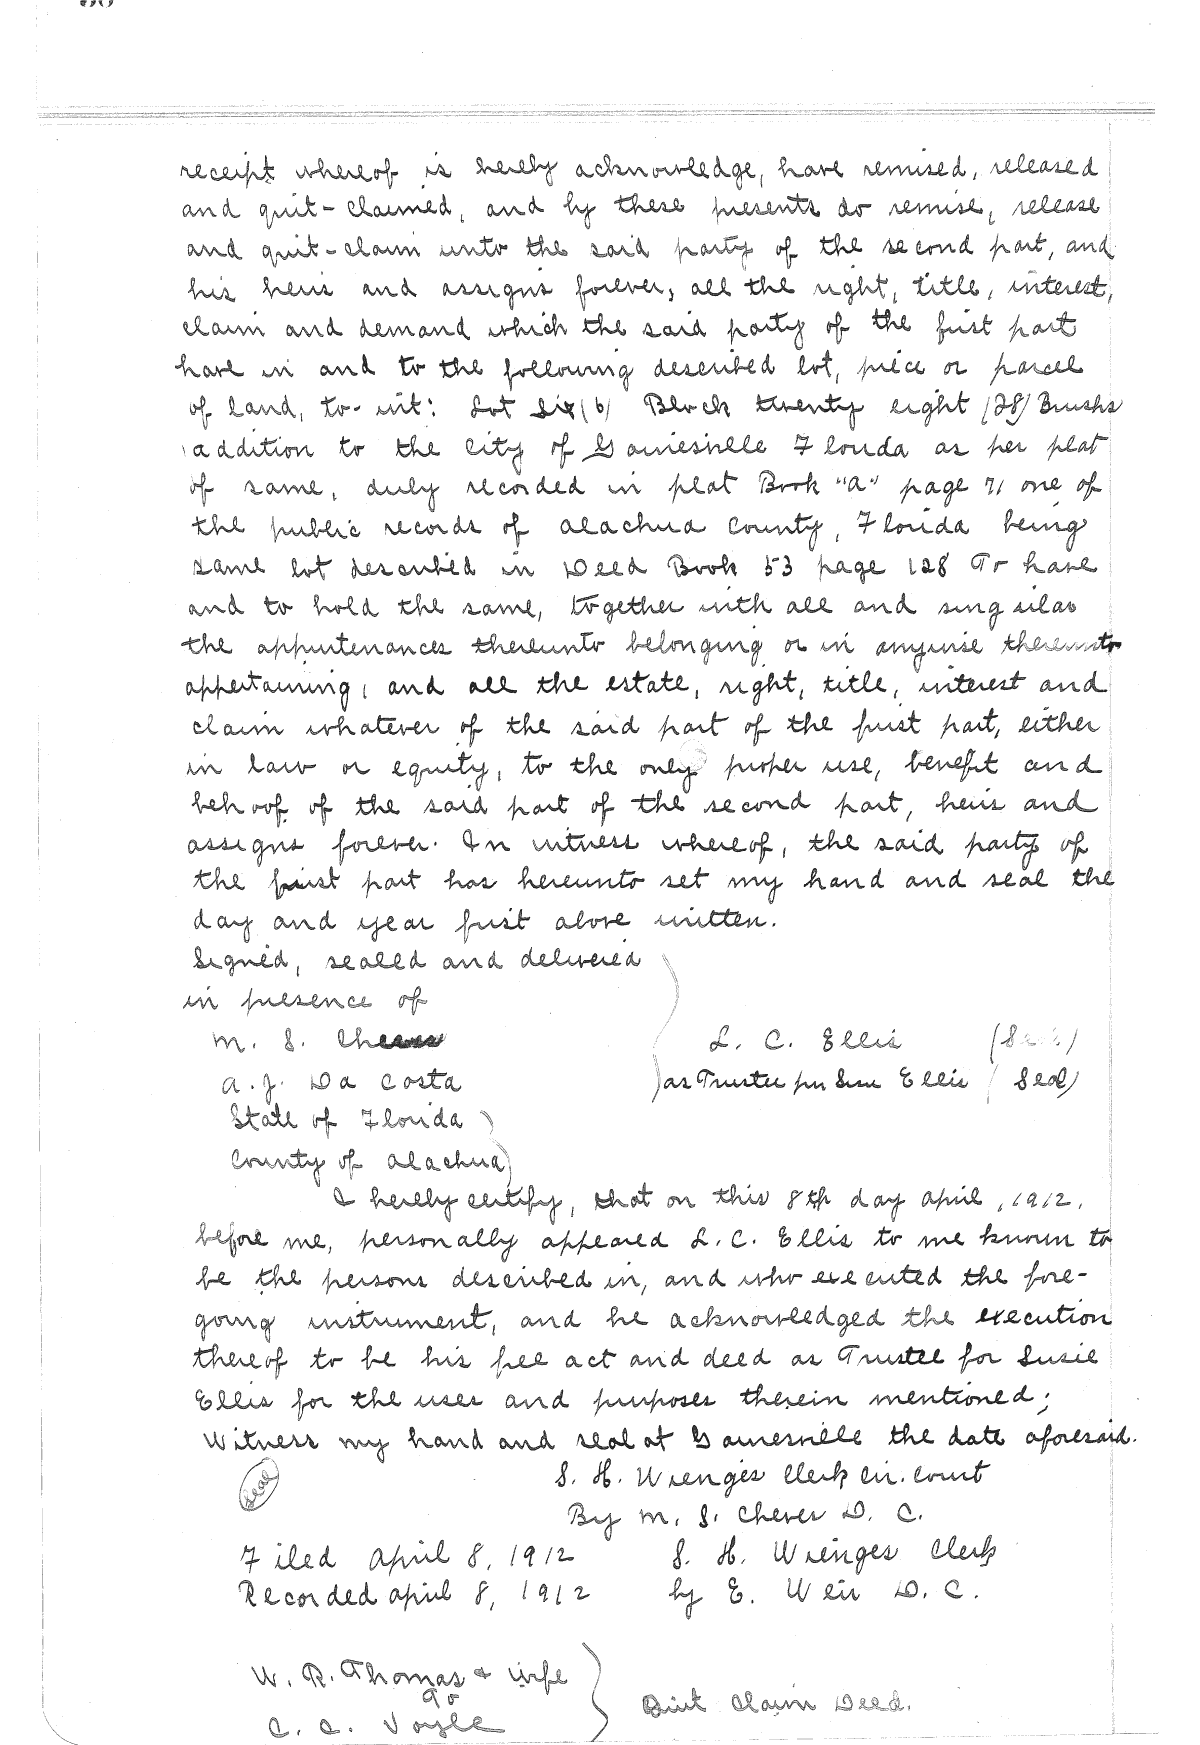 receipt whereof is hereby acknowledge, have remised, released
and quit-claimed, and by these presents do remise, release
and quit-claim unto the said party of the second part, and
his heirs and assigns forever, all the right, title, interest,
claim and demand which the said party of the first part
have in and to the following described lot, piece or parcel
of land, to-wit: Lot Six (6) Block twenty eight (28) Brushs
addition to the City of Gainesville Florida as per plat
of same, duly recorded in plat Book "A" page 71 one of
the public records of Alachua County, Florida being
same lot described in Deed Book 53 page 128 To have
and to hold the same, together with all and singular
the appurtenances thereunto belonging or in anywise thereunto
appertaining, and all the estate, right, title, interest and
claim whatever of the said part of the first part, either
in law or equity, to the only proper use, benefit and
behoof of the said part of the second part, heirs and
assigns forever. In witness whereof, the said party of
the first part has hereunto set my hand and seal the
day and year first above written.
Signed, sealed and delivered
in presence of
M. S. L. C. Ellis (Seal)
A. J. Da Costa as Trustee for Susie Ellis (Seal)
State of Florida
County of Alachua
I hereby certify, that on this 8th day April, 1912.
before me, personally appeared L. C. Ellis to me known to
be the persons described in, and who executed the fore-
going instrument, and he acknowledged the execution
thereof to be his free act and deed as Trustee for Susie
Ellis for the uses and purposes therein mentioned;
Witness my hand and seal at Gainesville the date aforesaid.
Seal S. H. Wienges Clerk Cir. Court
By M. S. Cheves D. C.
Filed April 8, 1912 S. H. Wienges Clerk
Recorded April 8, 1912 by E. Weir D. C.
W. R. Thomas & wife
To Quit Claim Deed.
C. C. Voyle